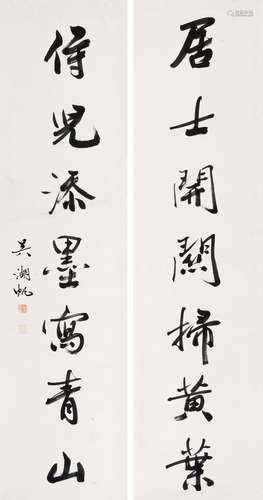 居士開關掃黃葉
侍兒添墨寫青山
吳湖帆